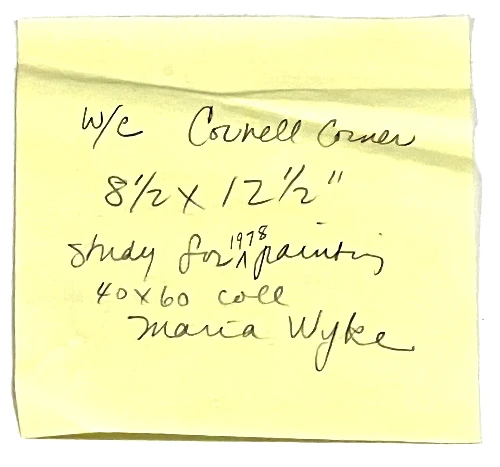 w/c Cornell Corner
8 1/2 x 12 1/2"
study for 1978 painting
40x60 coll
Maria Wyke